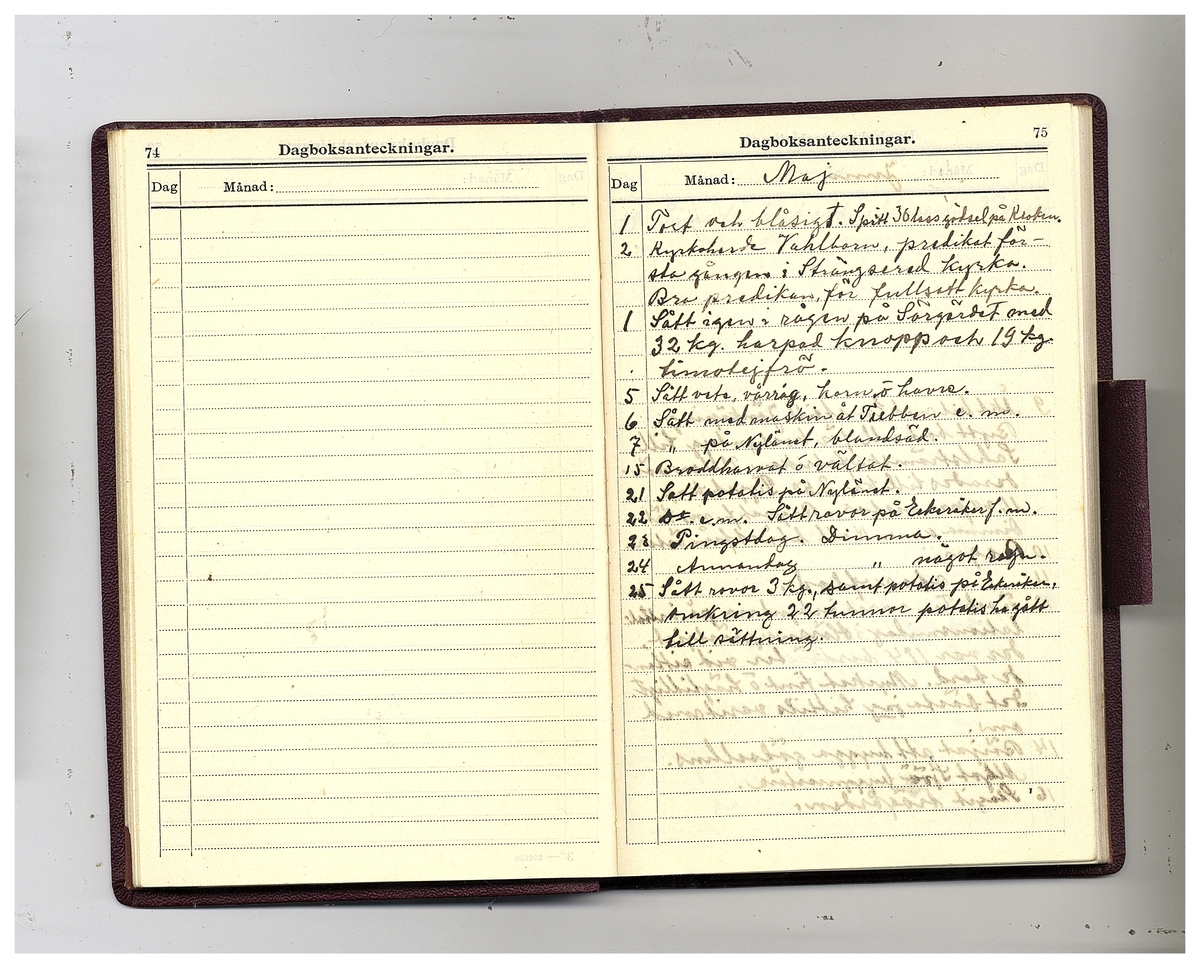 74
Dagboksanteckningar.
Dag Månad:
75
Dagboksanteckningar.
Dag Månad: Maj
1 Tort och blåsigt. Spitt 36 lass gödsel på Kroken.
2 Kyrkoherde Vahlborn, predikat för-
sta gången i Strängsered kyrka.
Bra predikan, för fullsatt kyrka.
1 Sått igen i rågen på Sörgärdet med
32 kg. harpad knopp och 19 kg.
timotejfrö.
5 Sått vete, vårråg, korn o havre.
6 Sått med maskin åt Trebben e. m.
7 " på Nylänet, blandsäd.
15 Broddharvat o vältat.
21 Satt potatis på Nylänet.
22 e.m. Sått rovor på f.m.
23 Pingstdag. Dimma.
24 Annandag " något regn.
25 Sått rovor 3 kg., samt potatis på
omkring 22 tunnor potatis ha gått
till sättning.